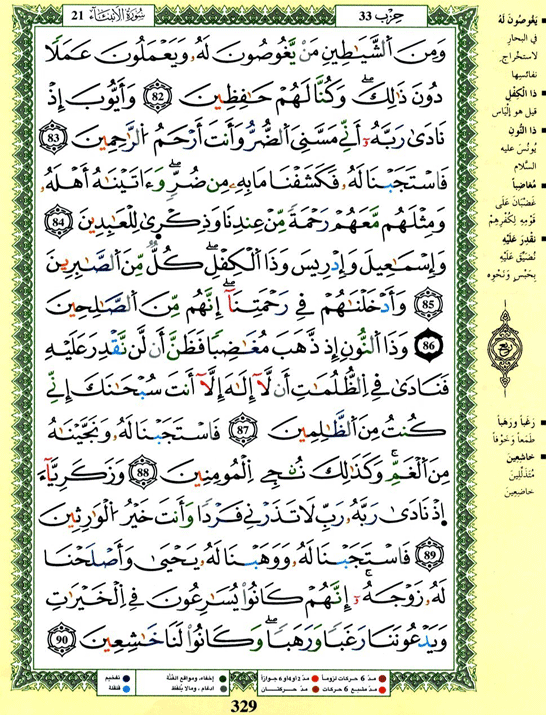 سُورَةُ الأَنبِيَاءِ 21
حِزْب 33
وَمِنَ اَ۬لشَّيَٰطِينِ مَنْ يَّغُوصُونَ لَهُۥ وَيَعْمَلُونَ عَمَلًا
دُونَ ذَٰلِكَۖ وَكُنَّا لَهُمْ حَٰفِظِينَ 82 وَأَيُّوبَ إِذْ
نَادَىٰ رَبَّهُۥٓ أَنِّي مَسَّنِيَ اَ۬لضُّرُّ وَأَنتَ أَرْحَمُ اُ۬لرَّٰحِمِينَ 83
فَاسْتَجَبْنَا لَهُۥ فَكَشَفْنَا مَا بِهِۦ مِن ضُرٍّۖ وَءَاتَيْنَٰهُ أَهْلَهُۥ
وَمِثْلَهُم مَّعَهُمْ رَحْمَةً مِّنْ عِندِنَا وَذِكْرَىٰ لِلْعَٰبِدِينَ 84
وَإِسْمَٰعِيلَ وَإِدْرِيسَ وَذَا اَ۬لْكِفْلِۖ كُلٌّ مِّنَ اَ۬لصَّٰبِرِينَ
85 وَأَدْخَلْنَٰهُمْ فِي رَحْمَتِنَآۖ إِنَّهُم مِّنَ اَ۬لصَّٰلِحِينَ
86 وَذَا اَ۬لنُّونِ إِذ ذَّهَبَ مُغَٰضِبًا فَظَنَّ أَن لَّن نَّقْدِرَ عَلَيْهِ
فَنَادَىٰ فِي اِ۬لظُّلُمَٰتِ أَن لَّآ إِلَٰهَ إِلَّآ أَنتَ سُبْحَٰنَكَ إِنِّي
كُنتُ مِنَ اَ۬لظَّٰلِمِينَ 87 فَاسْتَجَبْنَا لَهُۥ وَنَجَّيْنَٰهُ
مِنَ اَ۬لْغَمِّۚ وَكَذَٰلِكَ نُۨجِي اِ۬لْمُومِنِينَ 88 وَزَكَرِيَّآءَ
اِذْ نَادَىٰ رَبَّهُۥ رَبِّ لَا تَذَرْنِي فَرْدًا وَأَنتَ خَيْرُ اُ۬لْوَٰرِثِينَ
89 فَاسْتَجَبْنَا لَهُۥ وَوَهَبْنَا لَهُۥ يَحْيَىٰ وَأَصْلَحْنَا
لَهُۥ زَوْجَهُۥٓۚ إِنَّهُمْ كَانُواْ يُسَٰرِعُونَ فِي اِ۬لْخَيْرَٰتِ
وَيَدْعُونَنَا رَغَبًا وَرَهَبًاۖ وَكَانُواْ لَنَا خَٰشِعِينَ 90
يَغُوصُونَ لَهُ
في البحار
لاستخراج
نفائسها
ذا الكِفْلِ
قيل هو إلياس
ذا النُّون
يونس عليه
السلام
مُغاضِباً
غَضْبَانَ عَلَى
قَوْمِهِ لكُفْرِهِمْ
نَقْدِرَ عَلَيْهِ
نُضَيِّقَ عَلَيْهِ
بحَبْسٍ ونَحْوِه
رَغَباً ورَهَباً
طَمَعاً وَخَوْفاً
خاشِعِينَ
مُتَذَلِّلِينَ
خاضِعِينَ
مدّ 6 حركات لزوماً مدّ 2 أو 4 أو 6 جوازاً إخفاء، ومواقع الغُنَّة تفخيم
مدّ مشبع 6 حركات مدّ حركتان ادغام ، وما لا يُلفَظ قلقلة
329